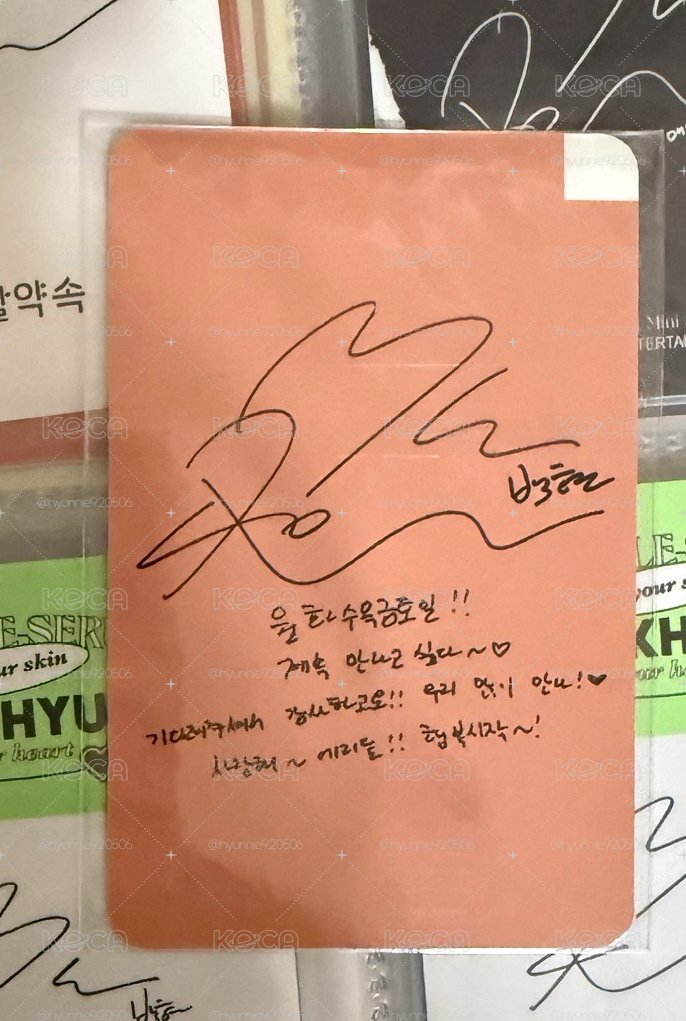 KOCA
@hyunnie920506
약속
백현
월 화 수목금토일 !!
계속 만나고 싶다~♡
기다려주셔서 감사하고요!! 우리 많이 만나!♥
사랑해~ 에리들!! 행복시작~!
Mini
E-SERI
ur skin
HYU
r heart
LE-S
your s
KH
ur h
백현